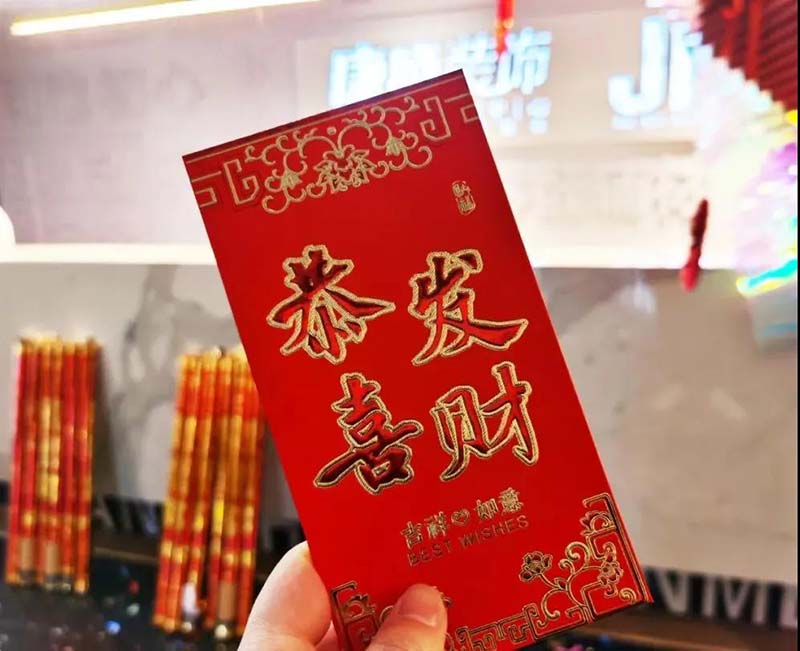 装饰
恭喜
发财
吉祥♡如意
BEST WISHES